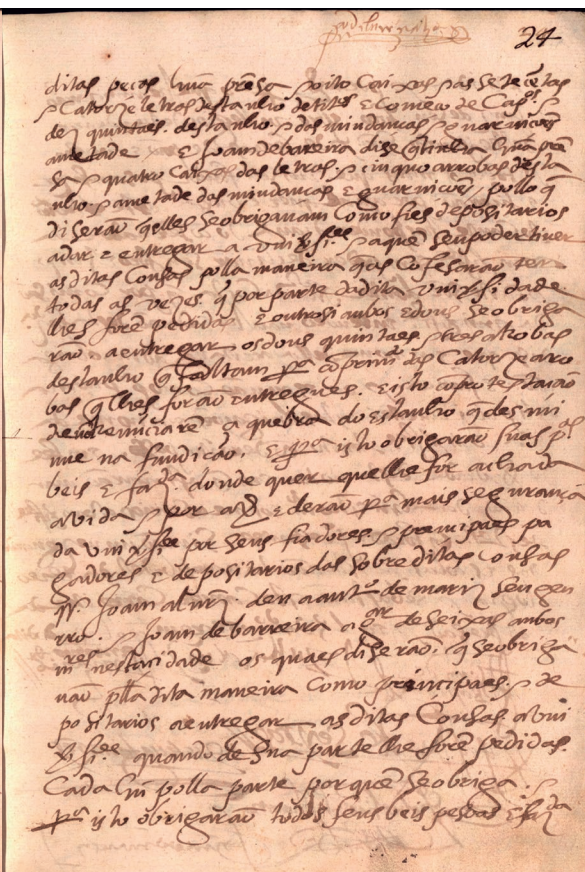 24
ditas peças hũa prẽsa & oito Caixas das sete cẽtas
& Catorze letras destanho de titos E Comeco de Capos &
dez quintaes destanho & das mindancas & guarnicões
ametade E Joam de bareira dise q̃ tinha hũa prẽ
sa & quatro Caixas das letras & cinquo arrobas desta
nho & ametade das mindancas E guarnicoes / pollo q̃
diserão q̃ elles se obrigauam Como fies depositarios
adar E entregar a vniversidee & a quẽ seu poder tiuer
as ditas Cousas polla maneira q̃ as Cõfesarão ter
todas as vezes q̃ por parte da dita vniversidade
lhes forẽ pedidas E outrosi ambos E dous se obriga
rão a entregar os dous quintaes & tres arrobas
destanho q̃ faltam pa comprimto das Catorze aro
bas q̃ lhes forão entregues E isto cõ protestação
de denunciarẽ a quebra do estanho q̃ des mi
nue na fundição. E pa isto obrigarão suas pas
beis E fazda donde quer que lhe for achada
avida & por aver E derão pa mais segurança
da vniversidee por seus fiadores & principaes pa
gadores E depositarios das sobreditas cousas
Joam alurz deu a anto de mariz seu gen
rro. & Joam de barreira a de Seixas ambos
mres nesta cidade os quaes diserão q̃ se obriga
uão plla dita maneira Como principaes & de
positarios a entregar as ditas Cousas a vni
versidee quando de sua parte lhe forẽ pedidas
Cada hũ polla parte por quẽ se obriga &
pa isto obrigarão todos seus beis pesoas E fazda